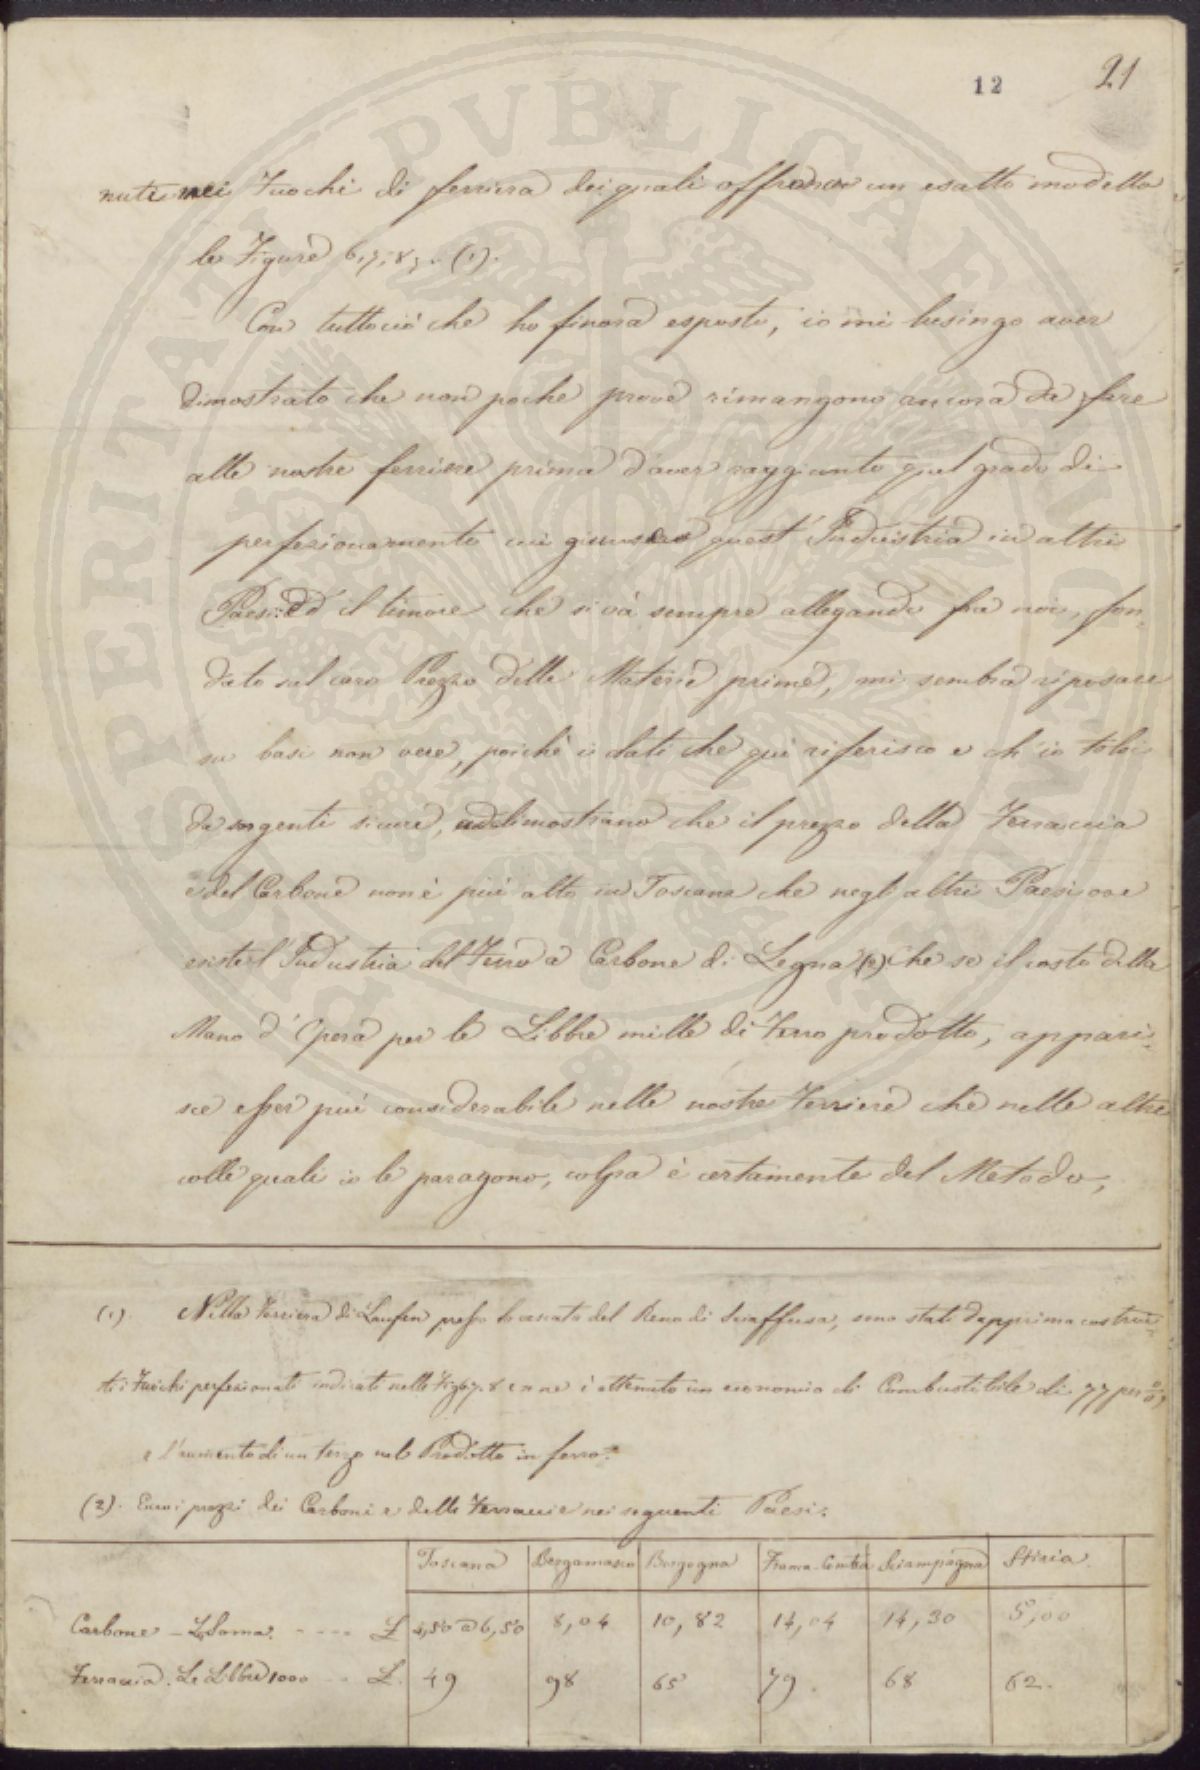 12 21
nuti nei Fuochi di ferriera dei quali offrono un esatto modello
le Figure 6, 7, 8, 9. (1).
Con tuttociò che ho finora esposto, io mi lusingo aver
dimostrato che non poche prove rimangono ancora da fare
alle nostre ferriere prima d'aver raggiunto quel grado di
perfezionamento cui giunse quest'Industria in altri
Paesi: Ed il timore che si và sempre allegando fra noi, fon-
dato sul caro Prezzo delle Materie prime, mi sembra riposare
su basi non vere, poichè i dati che quì riferisco e ch'io tolsi
da sorgenti sicure, dimostrano che il prezzo della Ferraccia
e del Carbone non è più alto in Toscana che negl'altri Paesi ove
esiste l'Industria del Ferro a Carbone di Legna (2) Che se il costo della
Mano d'Opera per le Libbre mille di Ferro prodotto, appari-
sce esser più considerabile nelle nostre Ferriere che nelle altre
colle quali io le paragono, colpa è certamente del Metodo,
(1). Nella Ferriera di Laufen presso la cascata del Reno di Sciaffusa, sono stati dapprima costrui-
ti i Fuochi perfezionati indicati nelle Fig. 6. 7. 8 e 9 e ne è ottenuto un economia di Combustibile di 77 per %,
e l'aumento di un terzo nel Prodotto in ferro.
(2). Ecco i prezzi dei Carboni e delle Ferraccie nei seguenti Paesi:
Toscana Bergamasco Borgogna Franca-Contea Sciampagna Stiria
Carbone - La Soma. - - - - £ 4,50 a 6,50 8,04 10,82 14,04 14,30 5,00
Ferraccia. Le Libbre 1000 - - £. 49 98 65 79. 68 62.
PROSPERITATI PVBLICAE